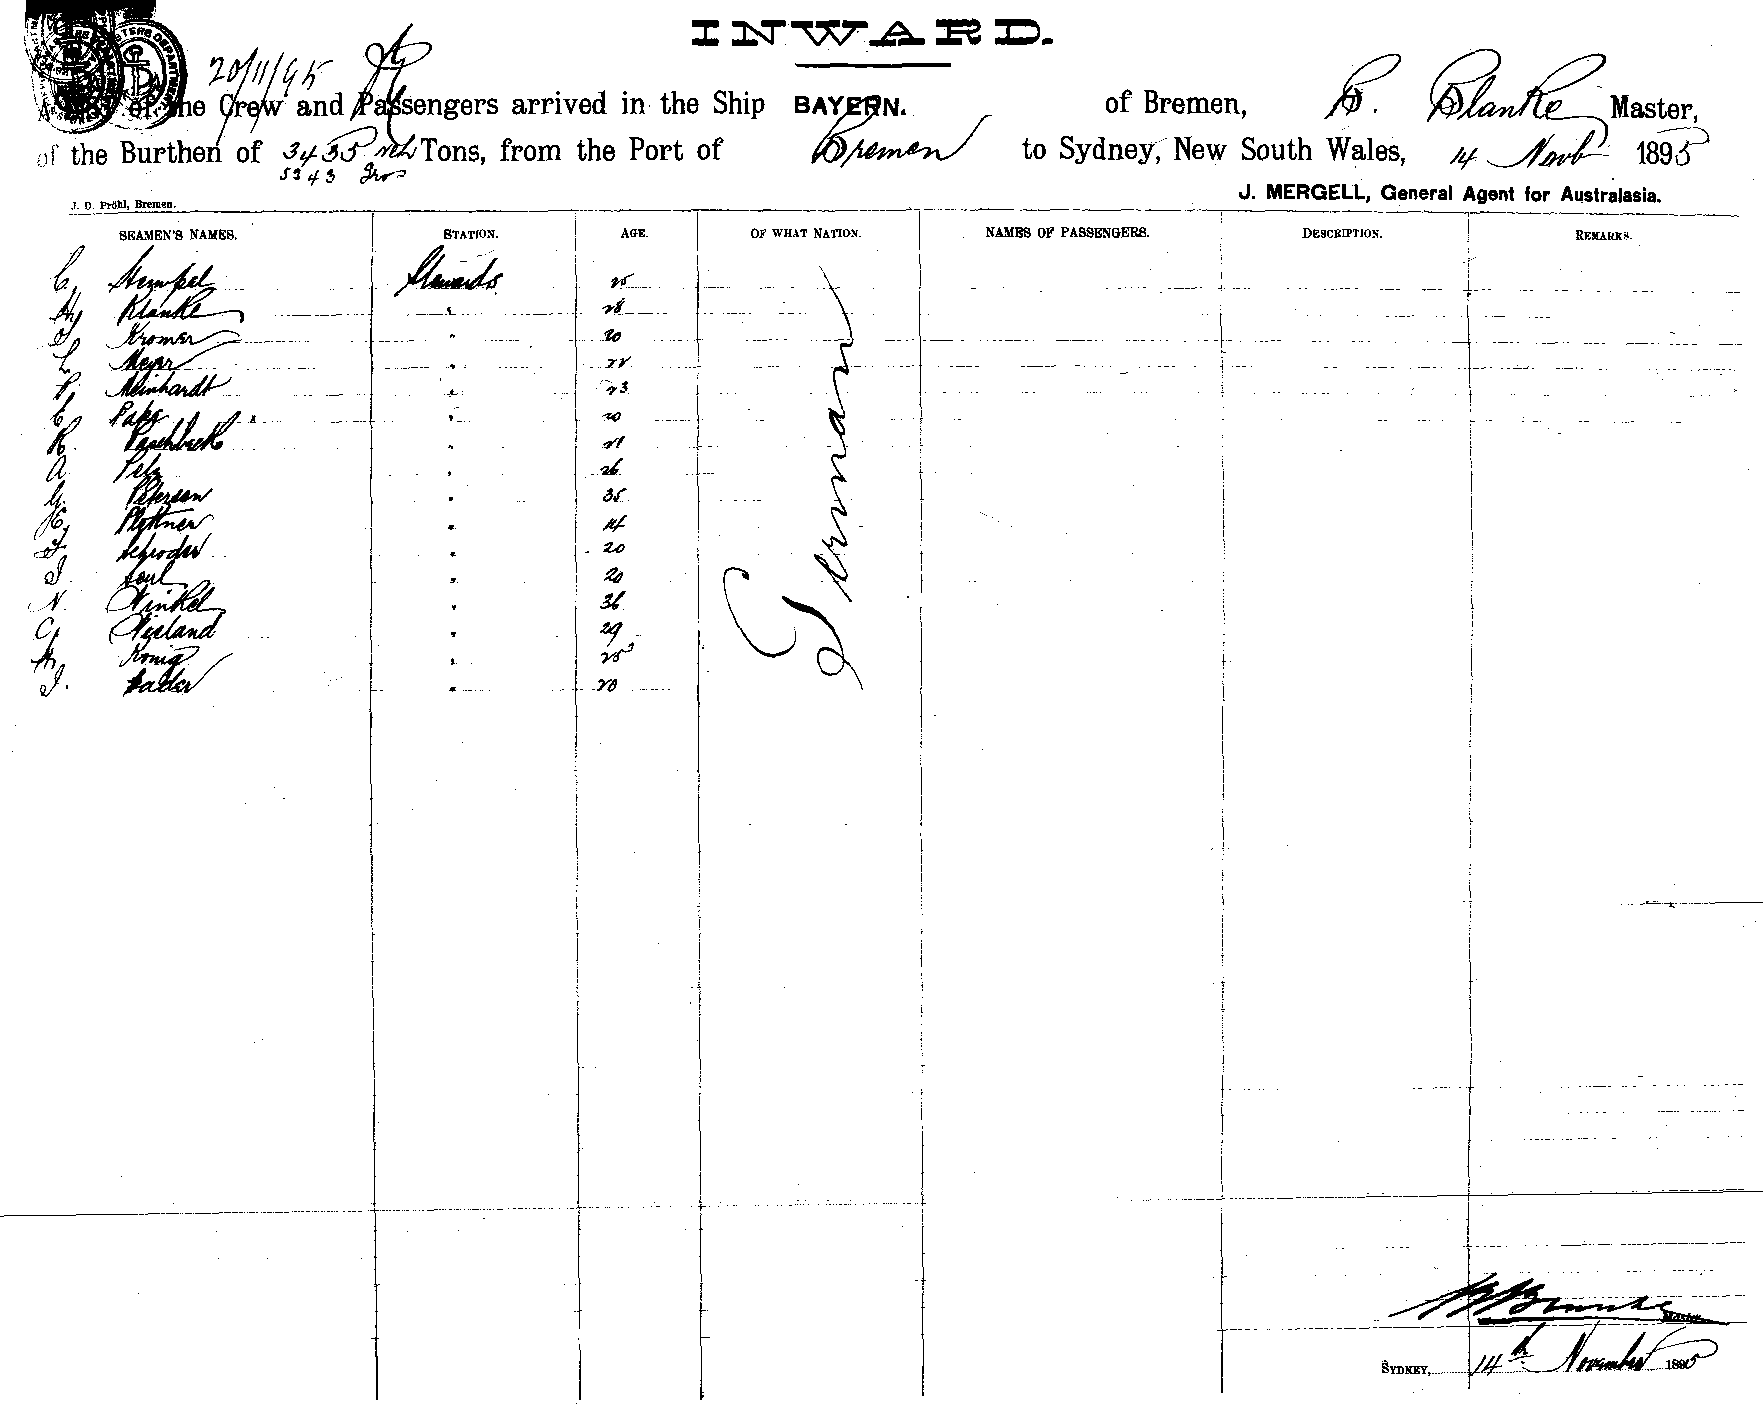 INWARD.
20/11/95
List of the Crew and Passengers arrived in the Ship BAYERN. of Bremen, B. Blanke Master,
of the Burthen of 3435 Tons, from the Port of Bremen to Sydney, New South Wales, 14 Novb 1895
5343 Gros
J. MERGELL, General Agent for Australasia.
J. D. Pröhl, Bremen.
SEAMEN'S NAMES. STATION. AGE. OF WHAT NATION. NAMES OF PASSENGERS. DESCRIPTION. REMARKS.
C. Hempel Stewards 25 German
Hy Klanke " 28
J Kromer " 20
L. Meyer "
P. Meinhardt " 23
C. Pape " 20
R. Paschbeck " 21
A Pelz " 26
G. Petersen " 35
H. Plettner "
F. Schroder " 20
J. " 20
N. Winkel " 36
C. Wieland " 29
H. Konig " 25
J. Sader " 20
B Blanke
Master.
SYDNEY, 14th November 1895